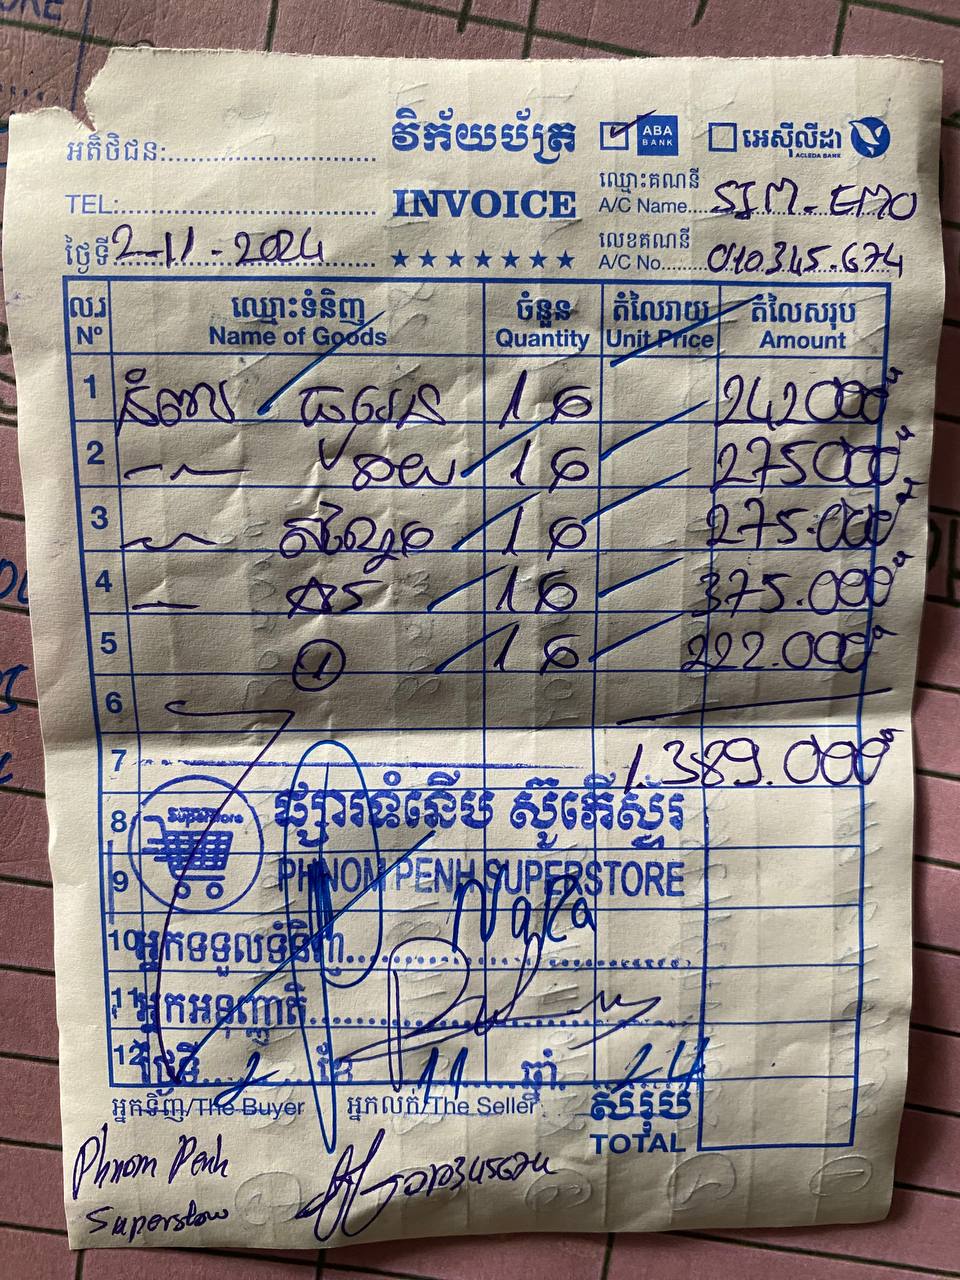 អតិថិជន:
វិក័យប័ត្រ
ABA BANK
អេស៊ីលីដា
ACLEDA BANK
TEL:
INVOICE
ឈ្មោះគណនី
A/C Name SIM-EMO
ថ្ងៃទី 2-11-2024
★★★★★★★
លេខគណនី
A/C No. 010.345.674
ល.រ ឈ្មោះទំនិញ ចំនួន តំលៃរាយ តំលៃសរុប
N° Name of Goods Quantity Unit Price Amount
1 នំពាយ ធុរេន 1 242000
2 1 275000
3 1 275.000
4 1 375.000
5 1 1 222.000
6
7 1.389.000
superstore
8 ផ្សារទំនើប ស៊ូភើស្ទ័រ
9 PHNOM PENH SUPERSTORE
10 អ្នកទទួលទំនិញ
11 អ្នកអនុញ្ញាតិ
12 ថ្ងៃទី 2 ខែ 11 ឆ្នាំ 24
អ្នកទិញ/The Buyer អ្នកលក់/The Seller សរុប
TOTAL
Phnom Penh
Superstore
010345674